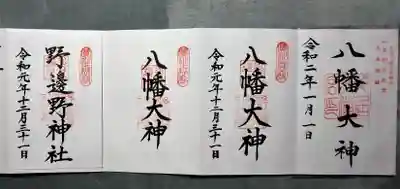 八幡大神
令和二年一月一日
八幡大神
令和元年十二月三十一日
八幡大神
令和元年十二月三十一日
野邊野神社
令和元年十二月三十一日